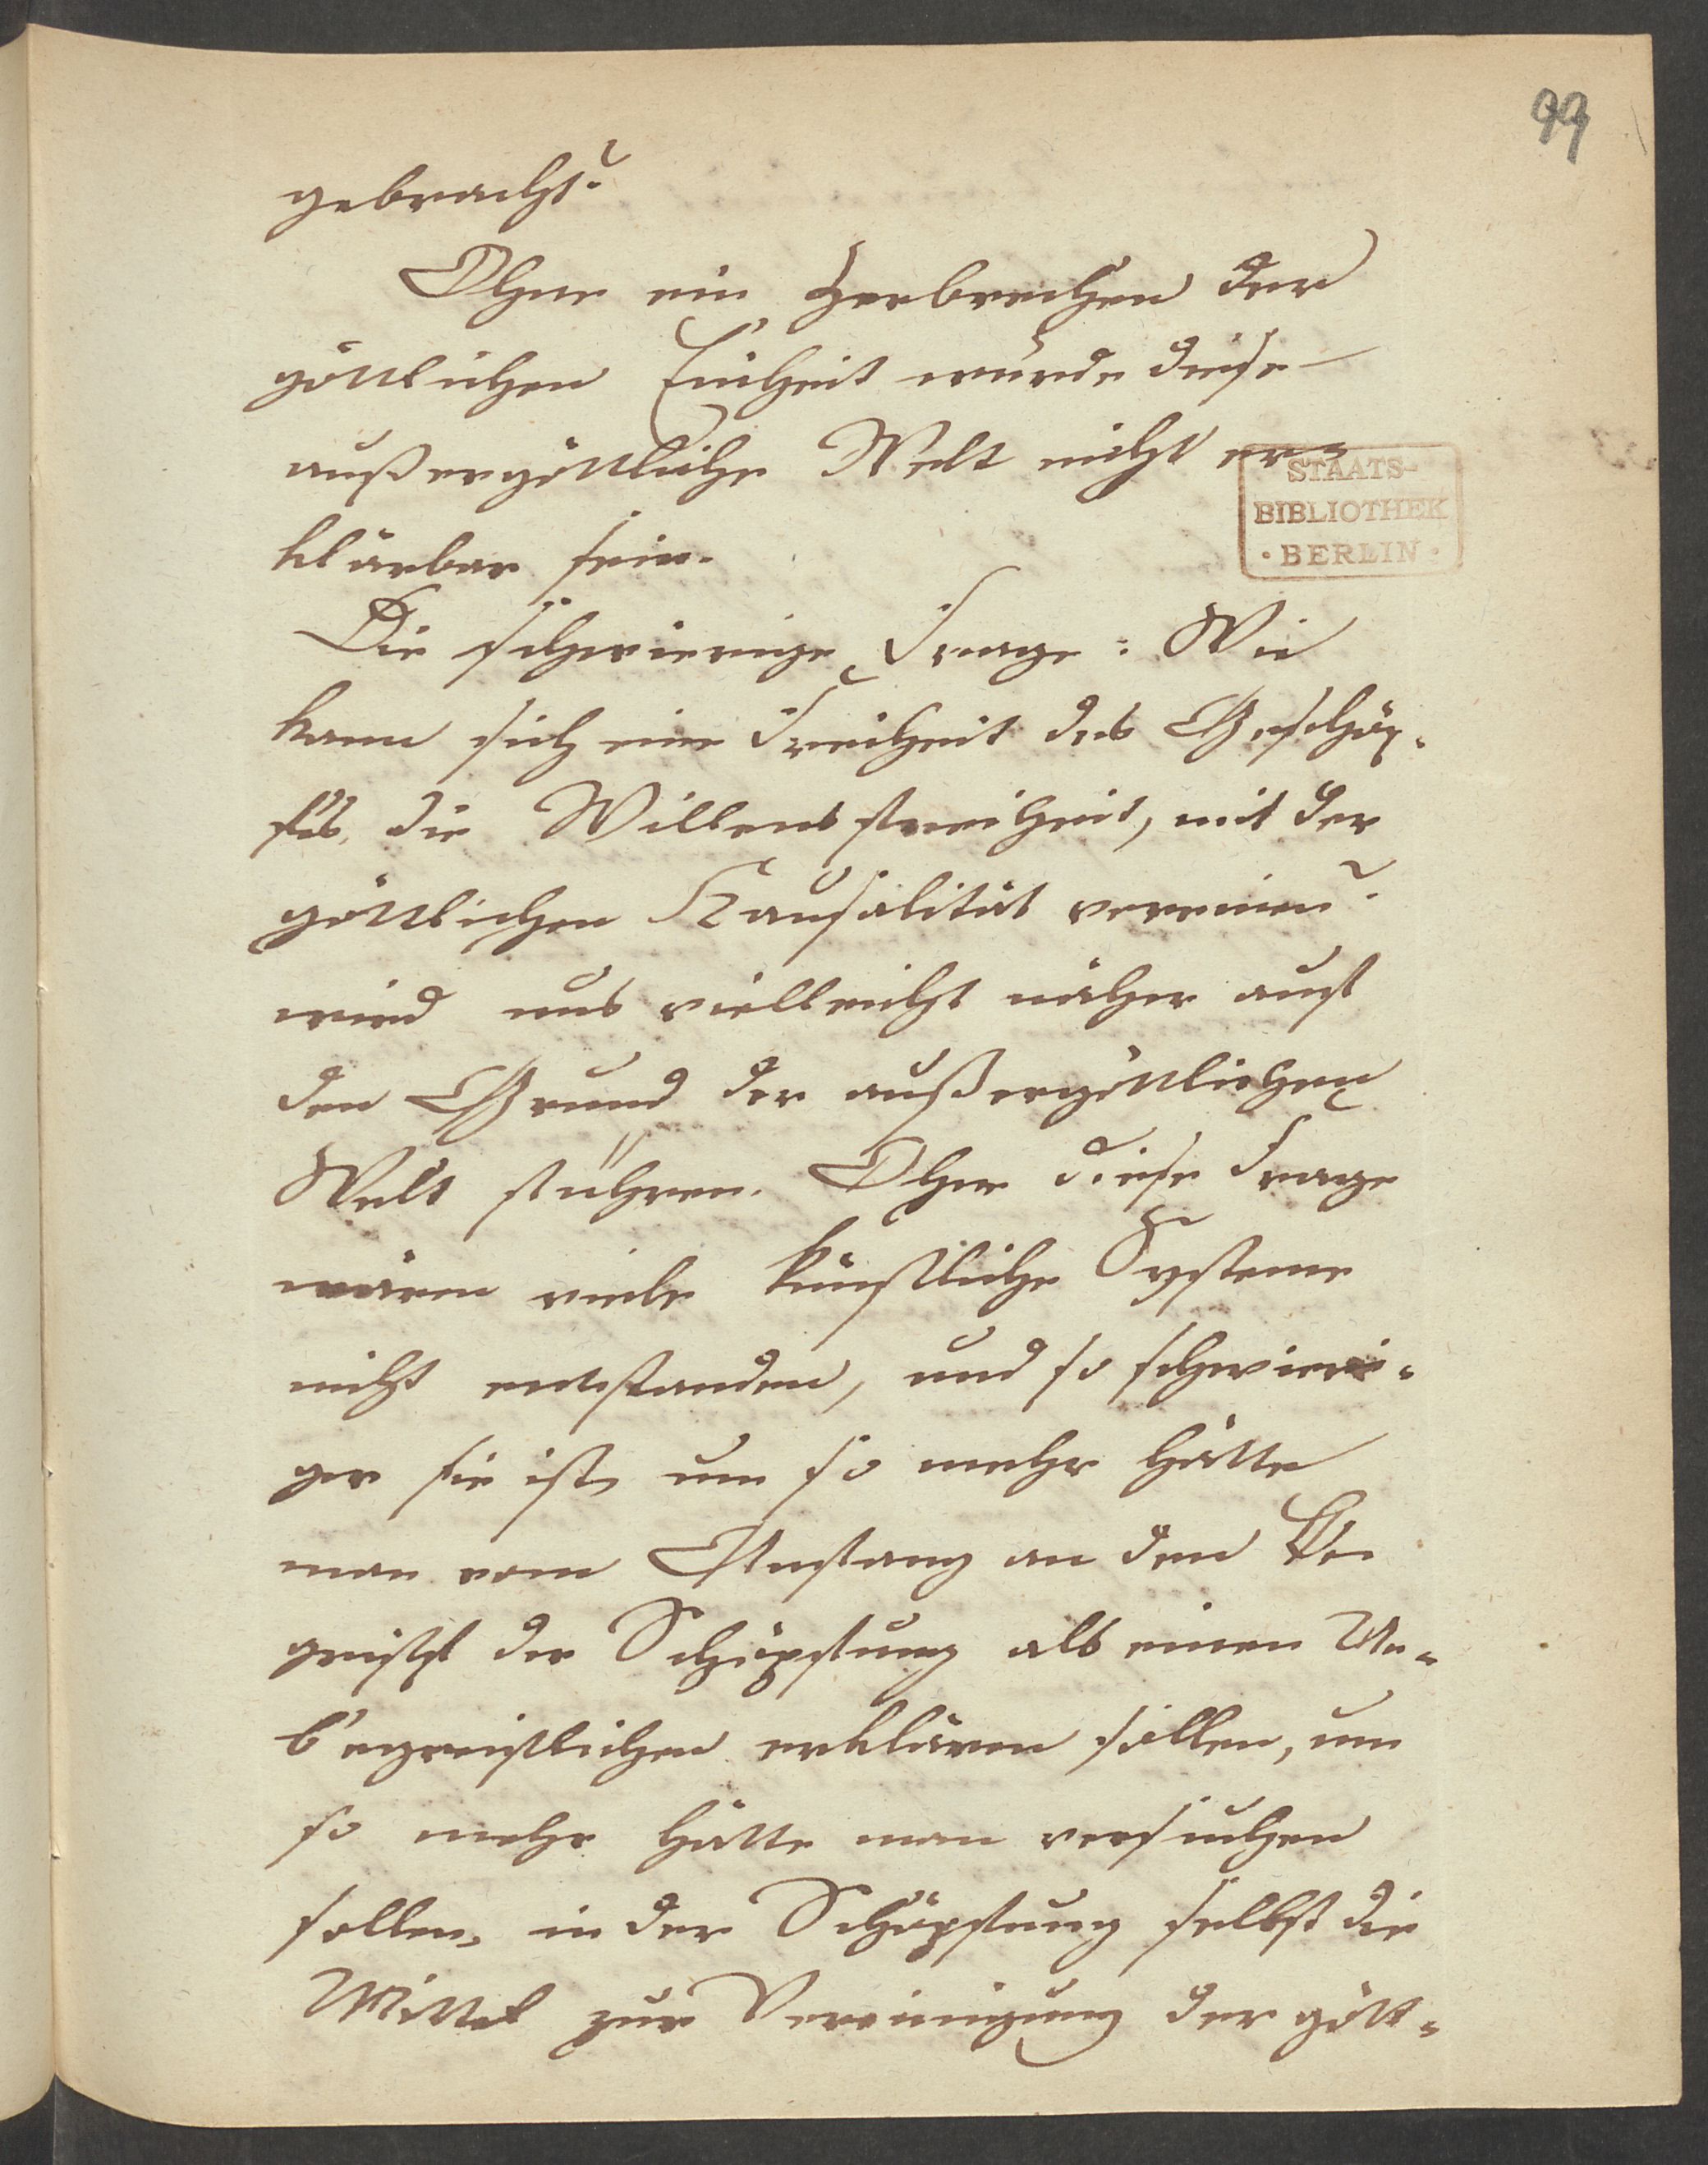 99
gebracht?
Ohne ein Zerbrechen der
göttlichen Einheit würde diese
außergöttliche Welt nicht er-
klärbar sein.
STAATS-
BIBLIOTHEK
· BERLIN ·
Die schwierige Frage: Wie
kann sich eine Freiheit des Geschöp-
fes, die Willensfreiheit, mit der
göttlichen Kausalität vereinen?
wird uns vielleicht näher auf
den Grund der außergöttlichen
Welt führen. Ohne diese Frage
wären viele künstliche Systeme
nicht entstanden, und so schwieri-
ger sie ist, um so mehr hätte
man vom Anfang an den Be-
griff der Schöpfung als einen Un-
begreiflichen erklären sollen, um
so mehr hätte man versuchen
sollen, in der Schöpfung selbst die
Mittel zur Vereinigung der gött-